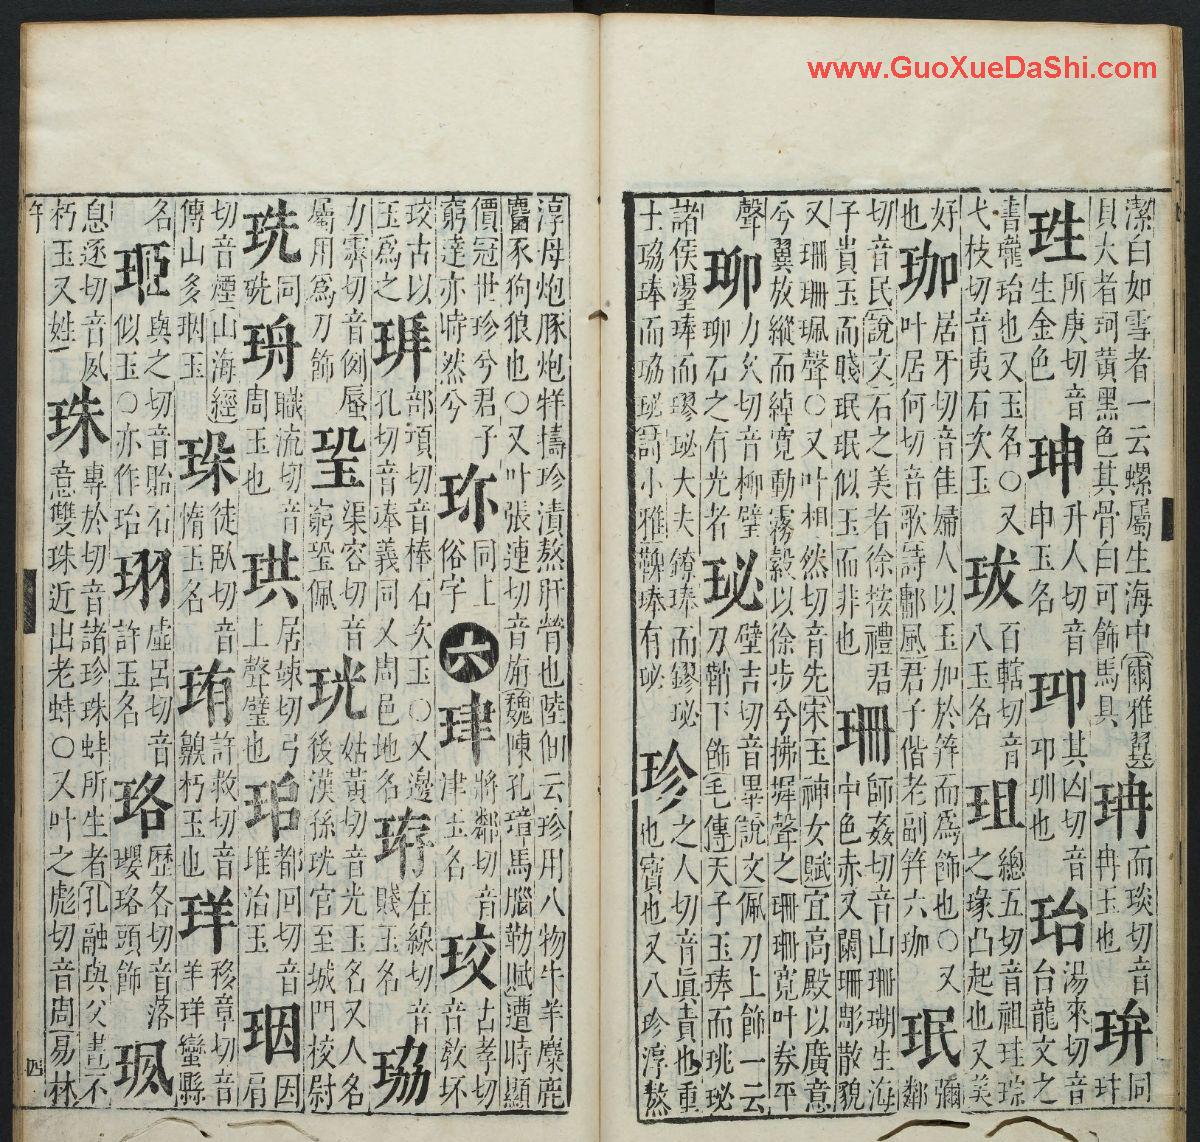 www.GuoXueDaShi.com
潔白如雪者一云螺屬生海中爾雅翼 而琰切音 同
貝大者珂黃黑色其骨白可飾馬具 珃 冉玉也 
珄 所庚切音 珅 升人切音 卭 其凶切音 珆 湯來切音
生金色 申玉名 卭玔也 台龍文之
書龍珆也又玉名○又 百轄切音 總五切音祖珪琮
弋枝切音夷石次玉 八玉名 珇 之瑑凸起也又美
好 珈 居牙切音佳婦人以玉加於笄而爲飾也○又 珉 彌
也 叶居何切音歌詩鄘風君子偕老副笄六珈 鄰
切音民說文石之美者徐按禮君 珊 師姦切音山珊瑚生海
子貴玉而賤珉珉似玉而非也 中色赤又闌珊彫散貌
又珊珊珮聲○又叶相然切音先宋玉神女賦宜高殿以廣意
兮翼放縱而綽寬動霧縠以徐步兮拂墀聲之珊珊寬叶券平
聲 力久切音柳璧 珌 璧吉切音畢說文佩刀上飾一云
石之有光者 刀鞘下飾毛傳天子玉琫而珧珌
諸侯璗琫而璆珌大夫鐐琫而鏐珌 珍 之人切音眞貴也重
士珕琫而珕珌詩小雅鞞琫有珌 也寶也又八珍淳熬
淳母炮豚炮牂擣珍漬熬肝膋也陸佃云珍用八物牛羊麋鹿
麕豕狗狼也○又叶張連切音旃魏陳孔璋馬腦勒賦遭時顯
價冠世珍兮君子 珎 同上 六 珒 將鄰切音 珓 古孝切
窮達亦時然兮 俗字 津玉名 音敎坏
珓古以 部項切音棒石次玉○又邊 在線切音 珕
玉爲之 孔切音琫義同又周邑地名 賤玉名
力霽切音例蜃 渠容切音 珖 姑黃切音光玉名又人名
屬用爲刀飾 窮 佩 後漢孫珖官至城門校尉
珗 同 珘 職流切音 珙 居竦切弓 都回切音 珚 因
珗 周玉也 上聲璧也 堆治玉 肩
切音煙山海經 徒臥切音 珛 許救切音 珜 移章切音
傳山多珚玉 惰玉名 齅朽玉也 羊 蠻縣
名 與之切音貽石 珝 虛呂切音 珞 歷各切音落 珟
似玉○亦作珆 許玉名 瓔珞頭飾
息逐切音夙 珠 專於切音諸珍珠蚌所生者孔融與父書不
朽玉又姓 意雙珠近出老蚌○又叶之彪切音周易林
午
四